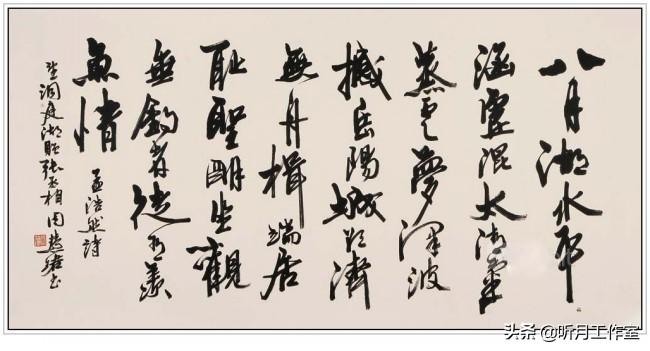 八月湖水平
涵虛混太清氣
蒸雲夢澤波
撼岳陽城欲濟
無舟楫端居
耻聖明坐觀
垂釣者徒有羡
魚情
孟浩然詩
望洞庭湖贈張丞相 周
头条 @听月工作室